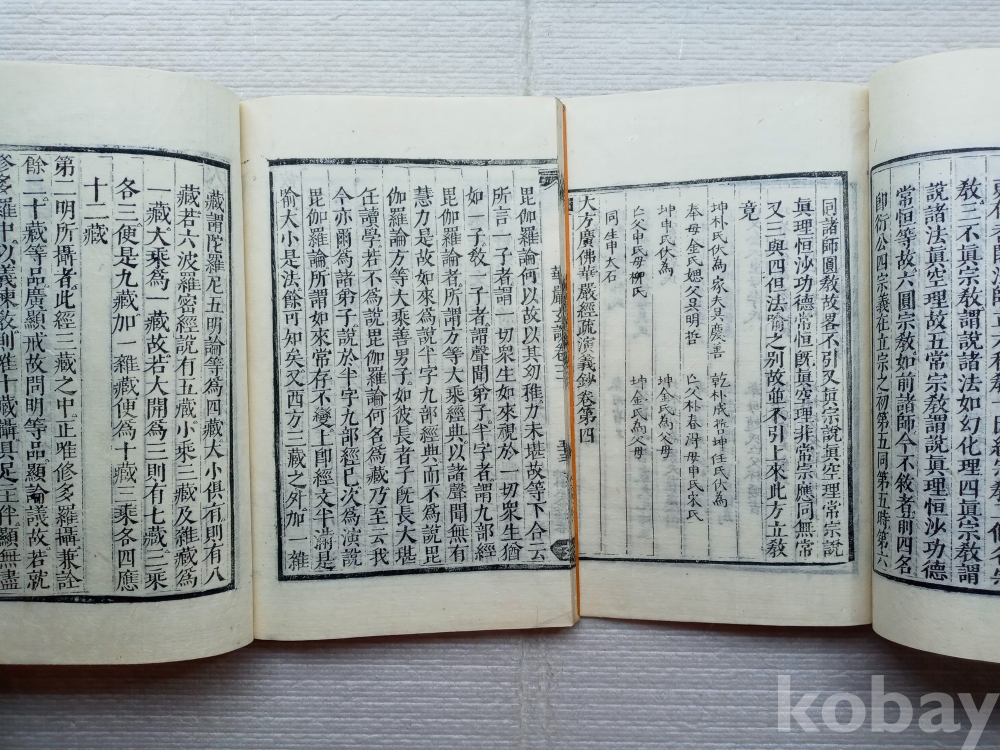 敎三不眞宗敎謂說諸法如幻化理四眞宗敎謂
說諸法眞空理故五常宗敎謂說眞理恒沙功德
常恒等故六圓宗敎如前諸師今不敘者前四名
卽衍公四宗義在立宗之初第五同第五時第六
同諸師圓敎故畧不引又眞宗說眞空理常宗說
眞理恒沙功德常恒旣眞空理非常宗應同無常
又三與四但法喻之別故並不引上來此方立敎
竟
坤朴氏伏為
家夫具慶善
乾朴成裕坤任氏伏為
奉母金氏
坤申氏伏為
坤金氏為父母
父申氏母柳氏
坤金氏為父母
同生申大石
大方廣佛華嚴經疏演義鈔卷第四
毘伽羅論何以故以其幼稚力未堪故等下合云
所言一子者謂一切眾生如來視於一切眾生猶
如一子敎一子者謂聲聞弟子半字者謂九部經
毘伽羅論者所謂方等大乘經典以諸聲聞無有
慧力是故如來為說半字九部經典而不為說毘
伽羅論方等大乘善男子如彼長者子旣長大堪
任讀學若不為說毘伽羅論何名為藏乃至云我
今亦爾為諸弟子說於半字九部經已次為演說
毘伽羅論所謂如來常存不變上卽經文半滿是
喻大小是法餘可知矣又西方三藏之外加一雜
藏謂陀羅尼五明論等為四藏大小俱有則有八
藏若六波羅密經說有五藏小乘三藏及雜藏為
一藏大乘為一藏故若大開為三則有七藏三乘
各三便是九藏加一雜藏便為十藏三乘各四應
十二藏
第二明所攝者此經三藏之中正唯修多羅攝兼詮
餘二十藏等品廣顯戒故問明等品顯論議故若就
修多羅中以義揀敎則雜十藏攝具足主伴顯無盡
kobay